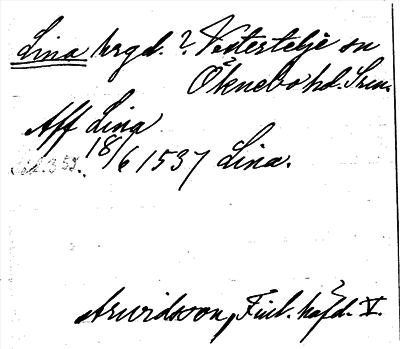 Lina hrgd. ? Västertelje sn
Öknebo hd. Srm.
Aff Lina
18/6 1537 Lina.
Arwidsson, Finl. häfd. V.